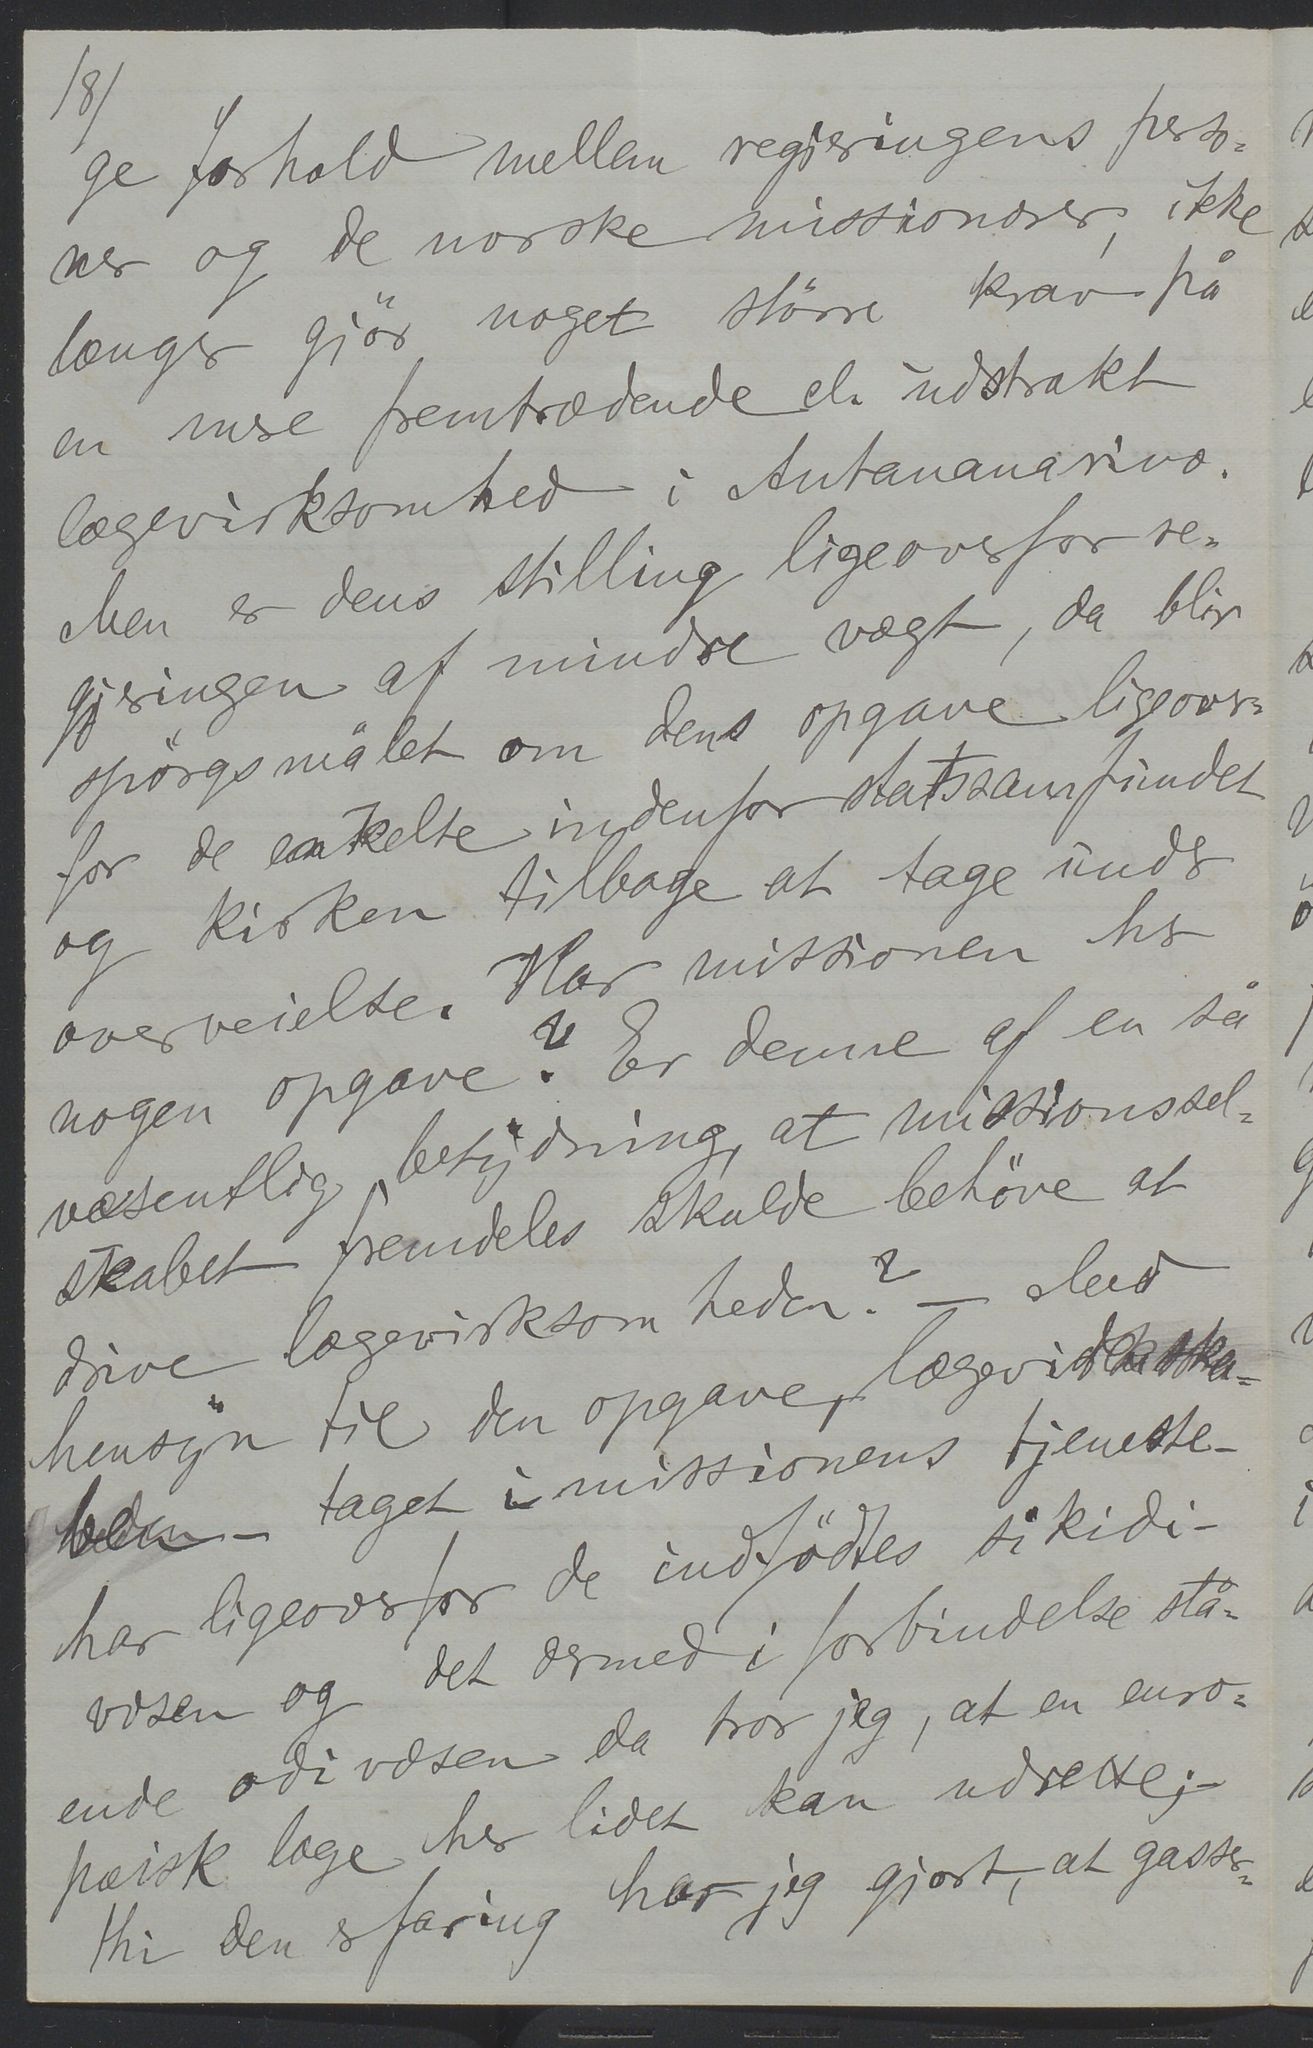 /8/
ge forhold mellem regjeringens perso-
ner og de norske missionærer, ikke
længer gjör noget större krav på
en mere fremtrædende el. udstrakt
lægevirksomhed i Antananarivo.
Men er dens stilling ligeoverfor re-
gjeringen af mindre vægt, da blir
spörgsmålet om dens opgave ligeover-
for de enkelte indenfor statssamfundet
og kirken tilbage at tage under
overveielse. Har missionen her
nogen opgave? Er denne af en så
væsentlig betydning, at missionssel-
skabet fremdeles skulde behöve at
drive lægevirksomheden? — Med
hensyn til den opgave, lægevidenska-
ben – taget i missionens tjeneste –
har ligeoverfor de indfödtes sikidi-
væsen og det dermed i forbindelse stå-
ende odivæsen da tror jeg, at en euro-
pæisk læge her lidet kan udrette; –
thi den erfaring har jeg gjort, at gasser-